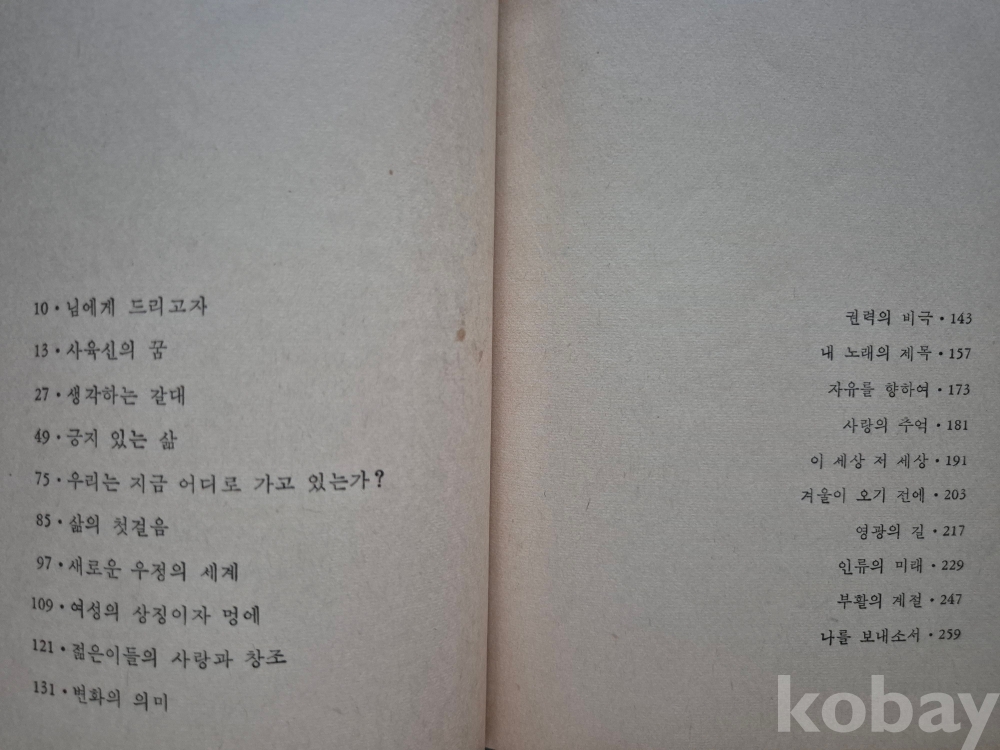 10·님에게 드리고자
13·사육신의 꿈
27·생각하는 갈대
49·긍지 있는 삶
75·우리는 지금 어디로 가고 있는가?
85·삶의 첫걸음
97·새로운 우정의 세계
109·여성의 상징이자 멍에
121·젊은이들의 사랑과 창조
131·변화의 의미
권력의 비극·143
내 노래의 제목·157
자유를 향하여·173
사랑의 추억·181
이 세상 저 세상·191
겨울이 오기 전에·203
영광의 길·217
인류의 미래·229
부활의 계절·247
나를 보내소서·259
kobay